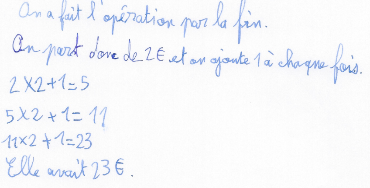 On a fait l'opération par la fin.
On part donc de 2€ et on ajoute 1 à chaque fois.
2×2+1=5
5×2+1=11
11×2+1=23
Elle avait 23€.